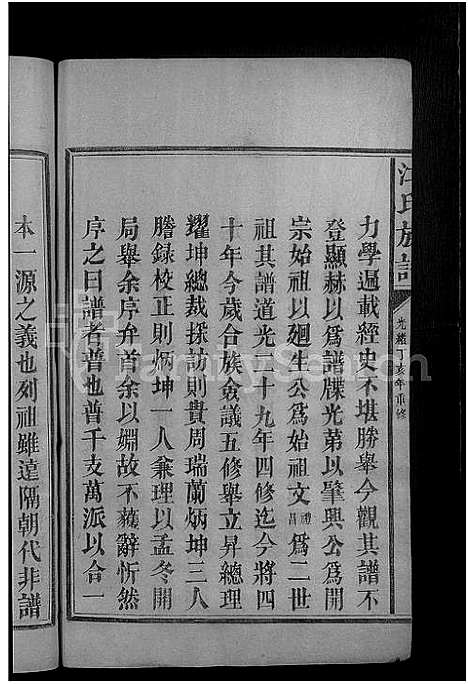 江氏族譜
光緒丁亥年重修
力學過載經史不堪勝舉今觀其譜不
登顯赫以為譜牒光第以肇興公為開
宗始祖以廻生公為始祖文禮昌為二世
祖其譜道光二十九年四修迄今將四
十年今歲合族僉議五修舉立昇總理
耀坤總裁採訪則貴周瑞蘭炳坤三人
謄錄校正則炳坤一人兼理以孟冬開
局舉余序弁首余以婣故不藐辭忻然
序之曰譜者普也普千支萬派以合一
本一源之義也列祖雖遠隔朝代非譜
FamilySearch